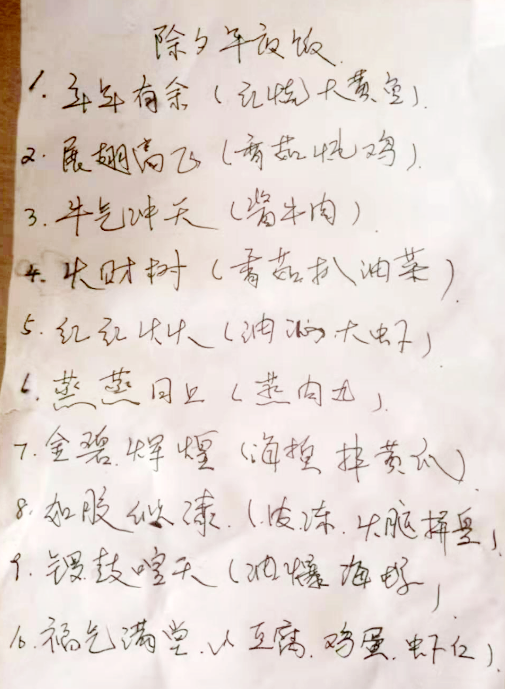 除夕年夜饭
1. 年年有余（红烧大黄鱼）
2. 展翅高飞（香菇炖鸡）
3. 牛气冲天（酱牛肉）
4. 大财树（香菇扒油菜）
5. 红红火火（油焖大虾）
6. 蒸蒸日上（蒸肉丸）
7. 金碧辉煌（海蜇拌黄瓜）
8. 如胶似漆（皮冻、火腿拼盘）
9. 锣鼓喧天（油爆海螺）
10. 福气满堂（豆腐、鸡蛋、虾仁）